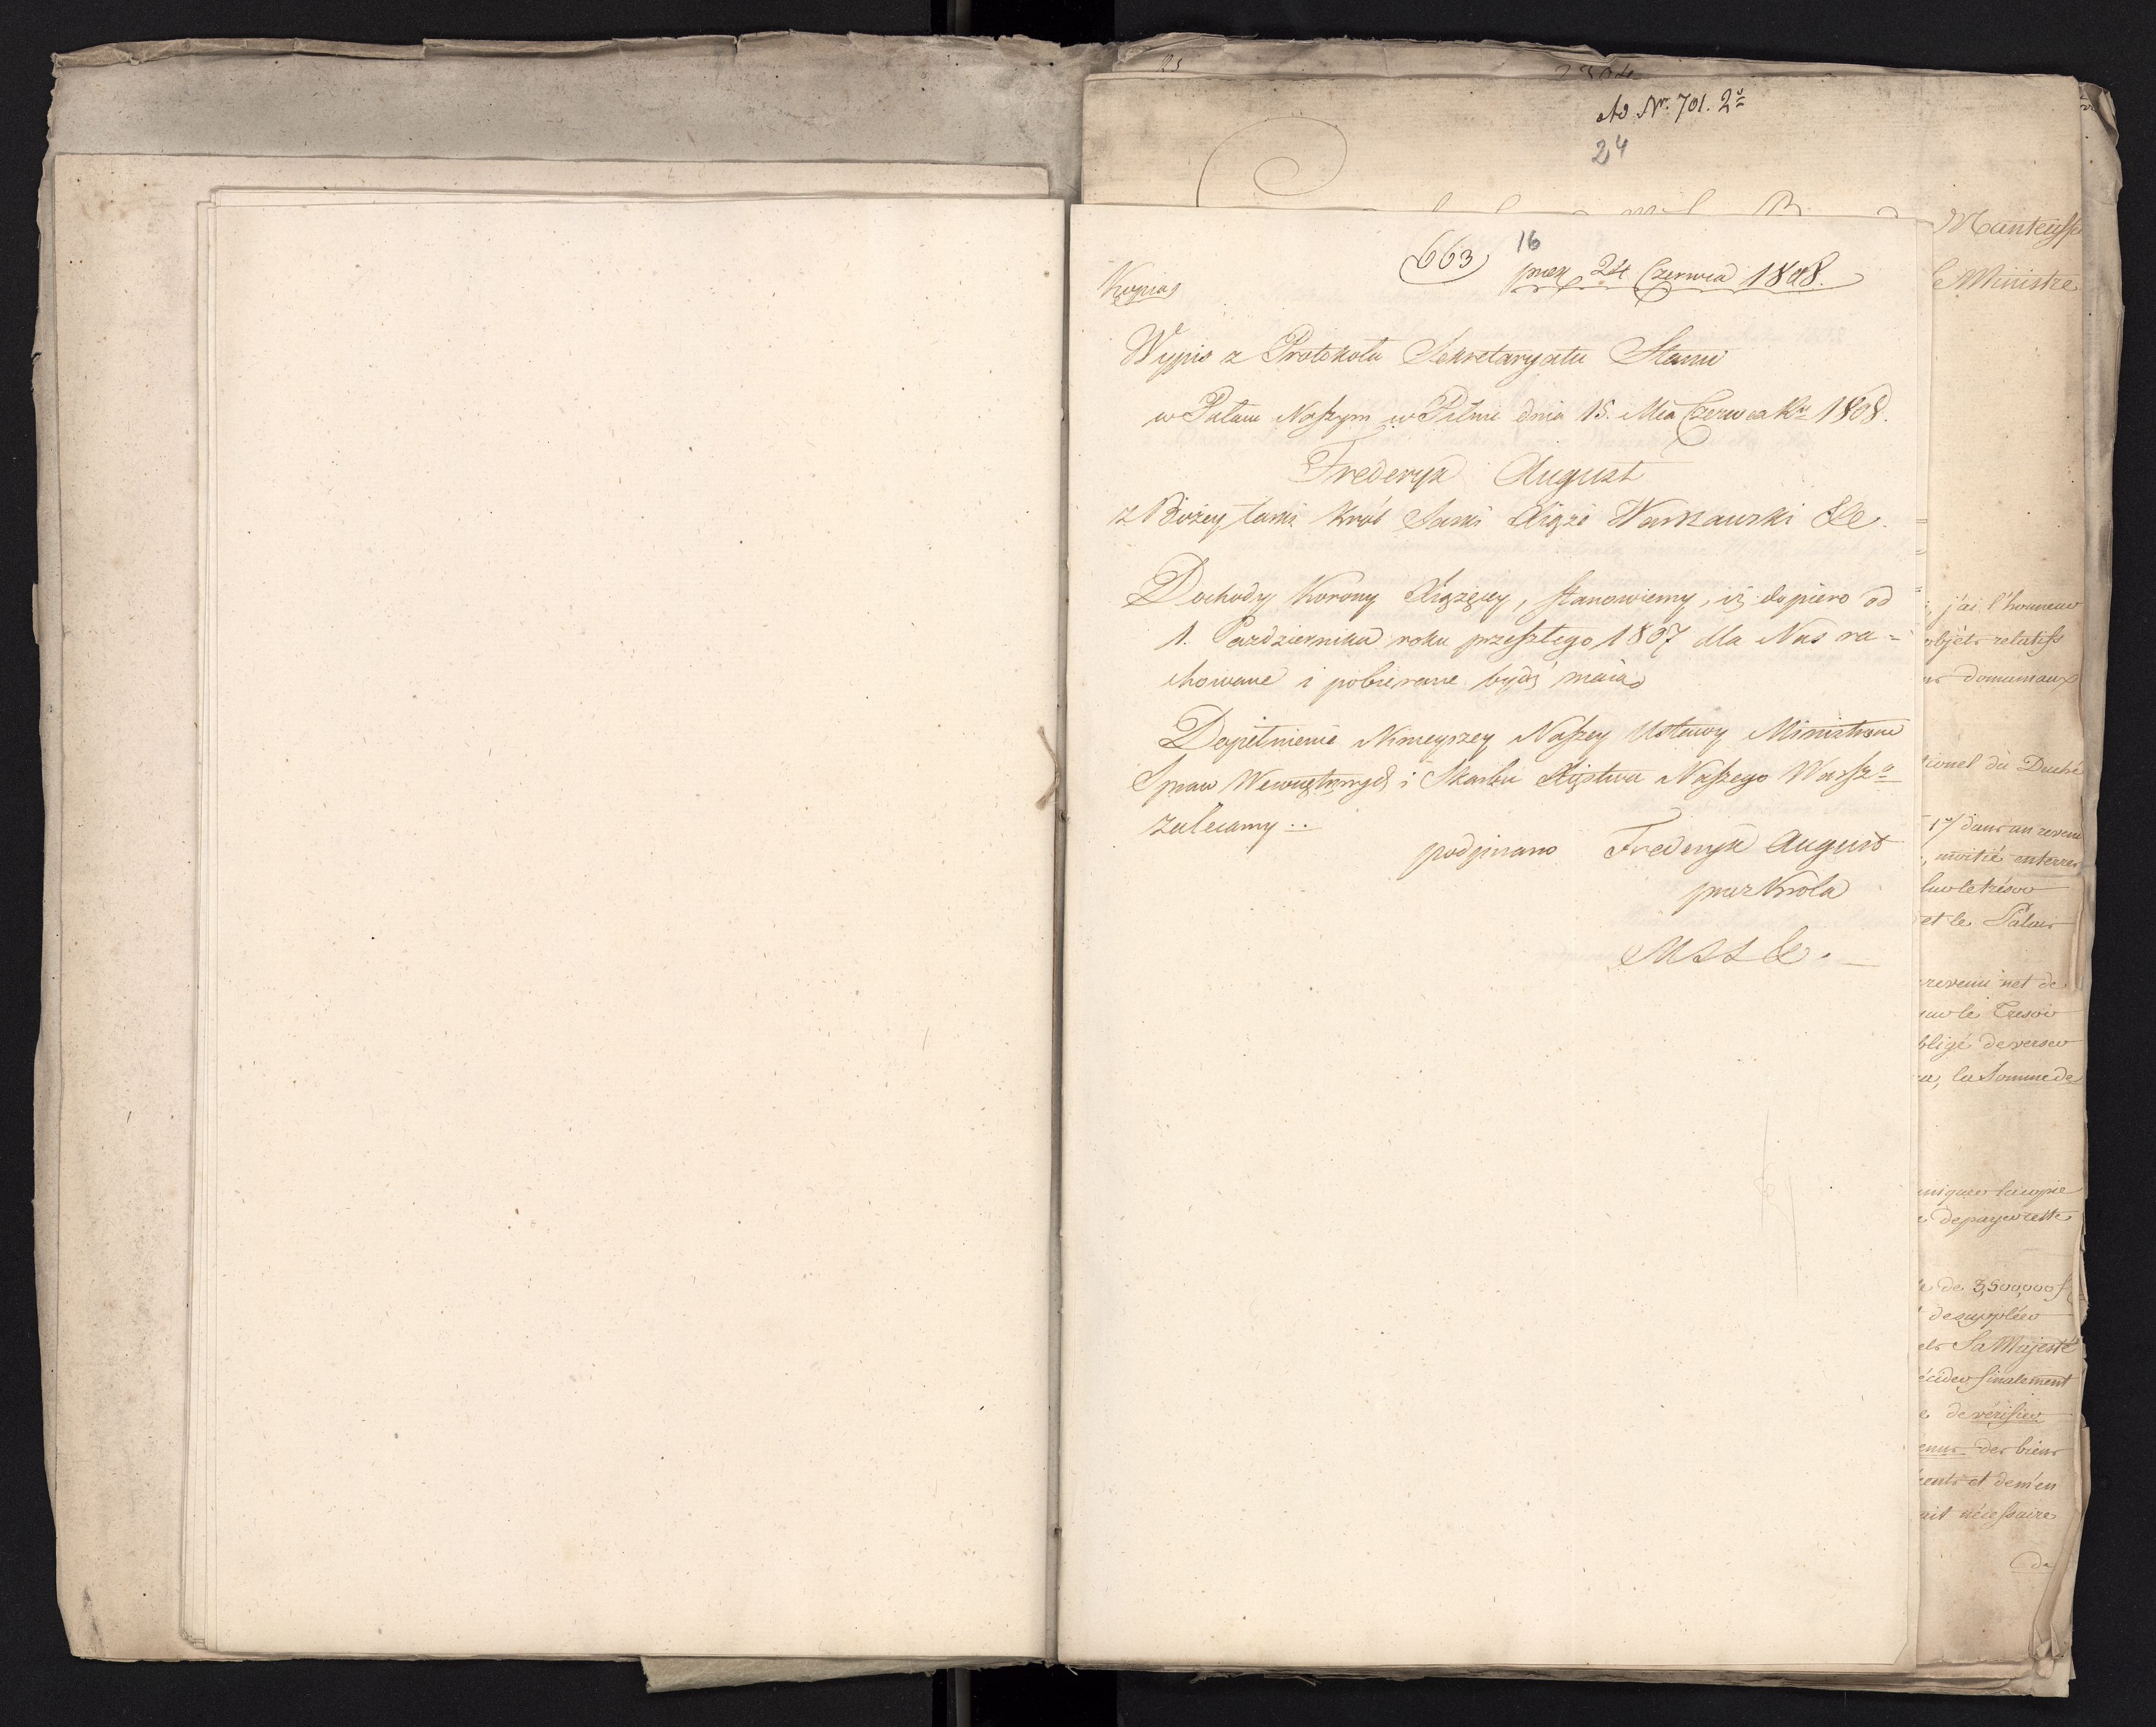 Ad Nr. 701. 2
24
16
663 prez 24 Czerwca 1808.
Kopia
Wypis z Protokołu Sekretaryatu Stanu
w Pałacu Naszym w Pilnie dnia 15. Mca Czerwca Ru 1808.
Frederyk August
z Bożey łaski Król Saski Xiąże Warszawski &c.
Dochody Korony Xiążęcey, stanowiemy, iż dopiero od
1. Października roku przeszłego 1807 dla Nas ra=
chowane i pobierane bydź maią
Dopełnienie Ninieyszey Naszey Ustawy Ministrom
Spraw Wewnętrznych i Skarbu Xięstwa Naszego Warsz°
zalecamy..
podpisano Frederyk August
przez Króla
MSS &.
Manteuffe
le Ministre
j'ai l'honneur
objets relatifs
domaniaux
tionel du Duché
dans un revenu
moitié en terres
sur le trésor
et le Palais
revenu net de
sur le Tresor
bligé de verser
la Somme de
uniquer la copie
de payer cette
de 3,500,000 f
de suppléer
Sa Majesté
écider finalement
de verifier
enus des biens
et dem'en
ait nécessaire
de